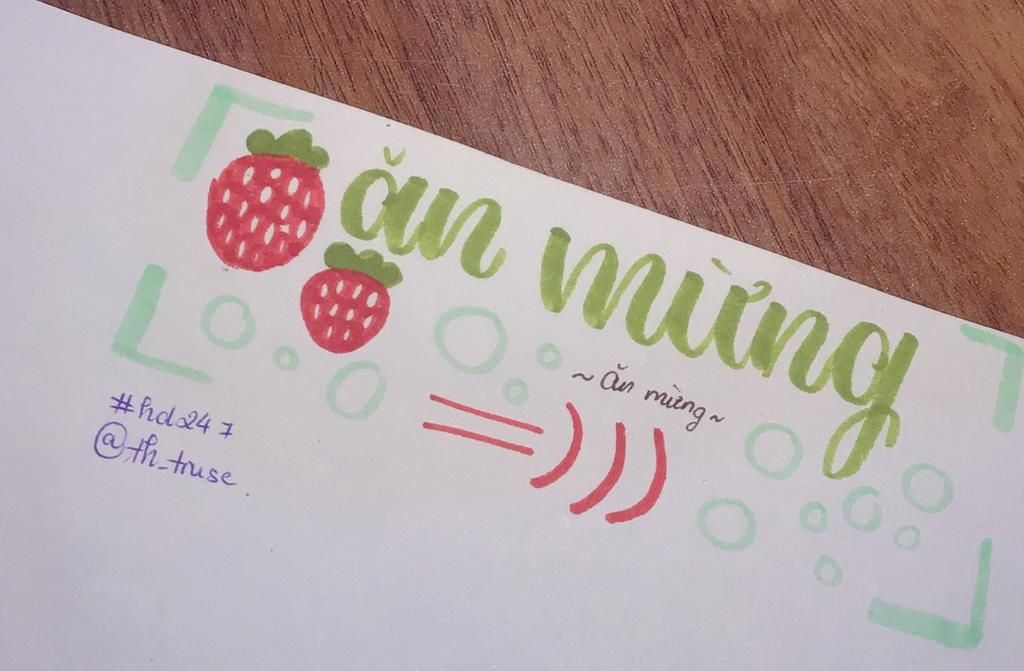 ăn mừng
~ ăn mừng ~
=)))
#hd247
@th_truse